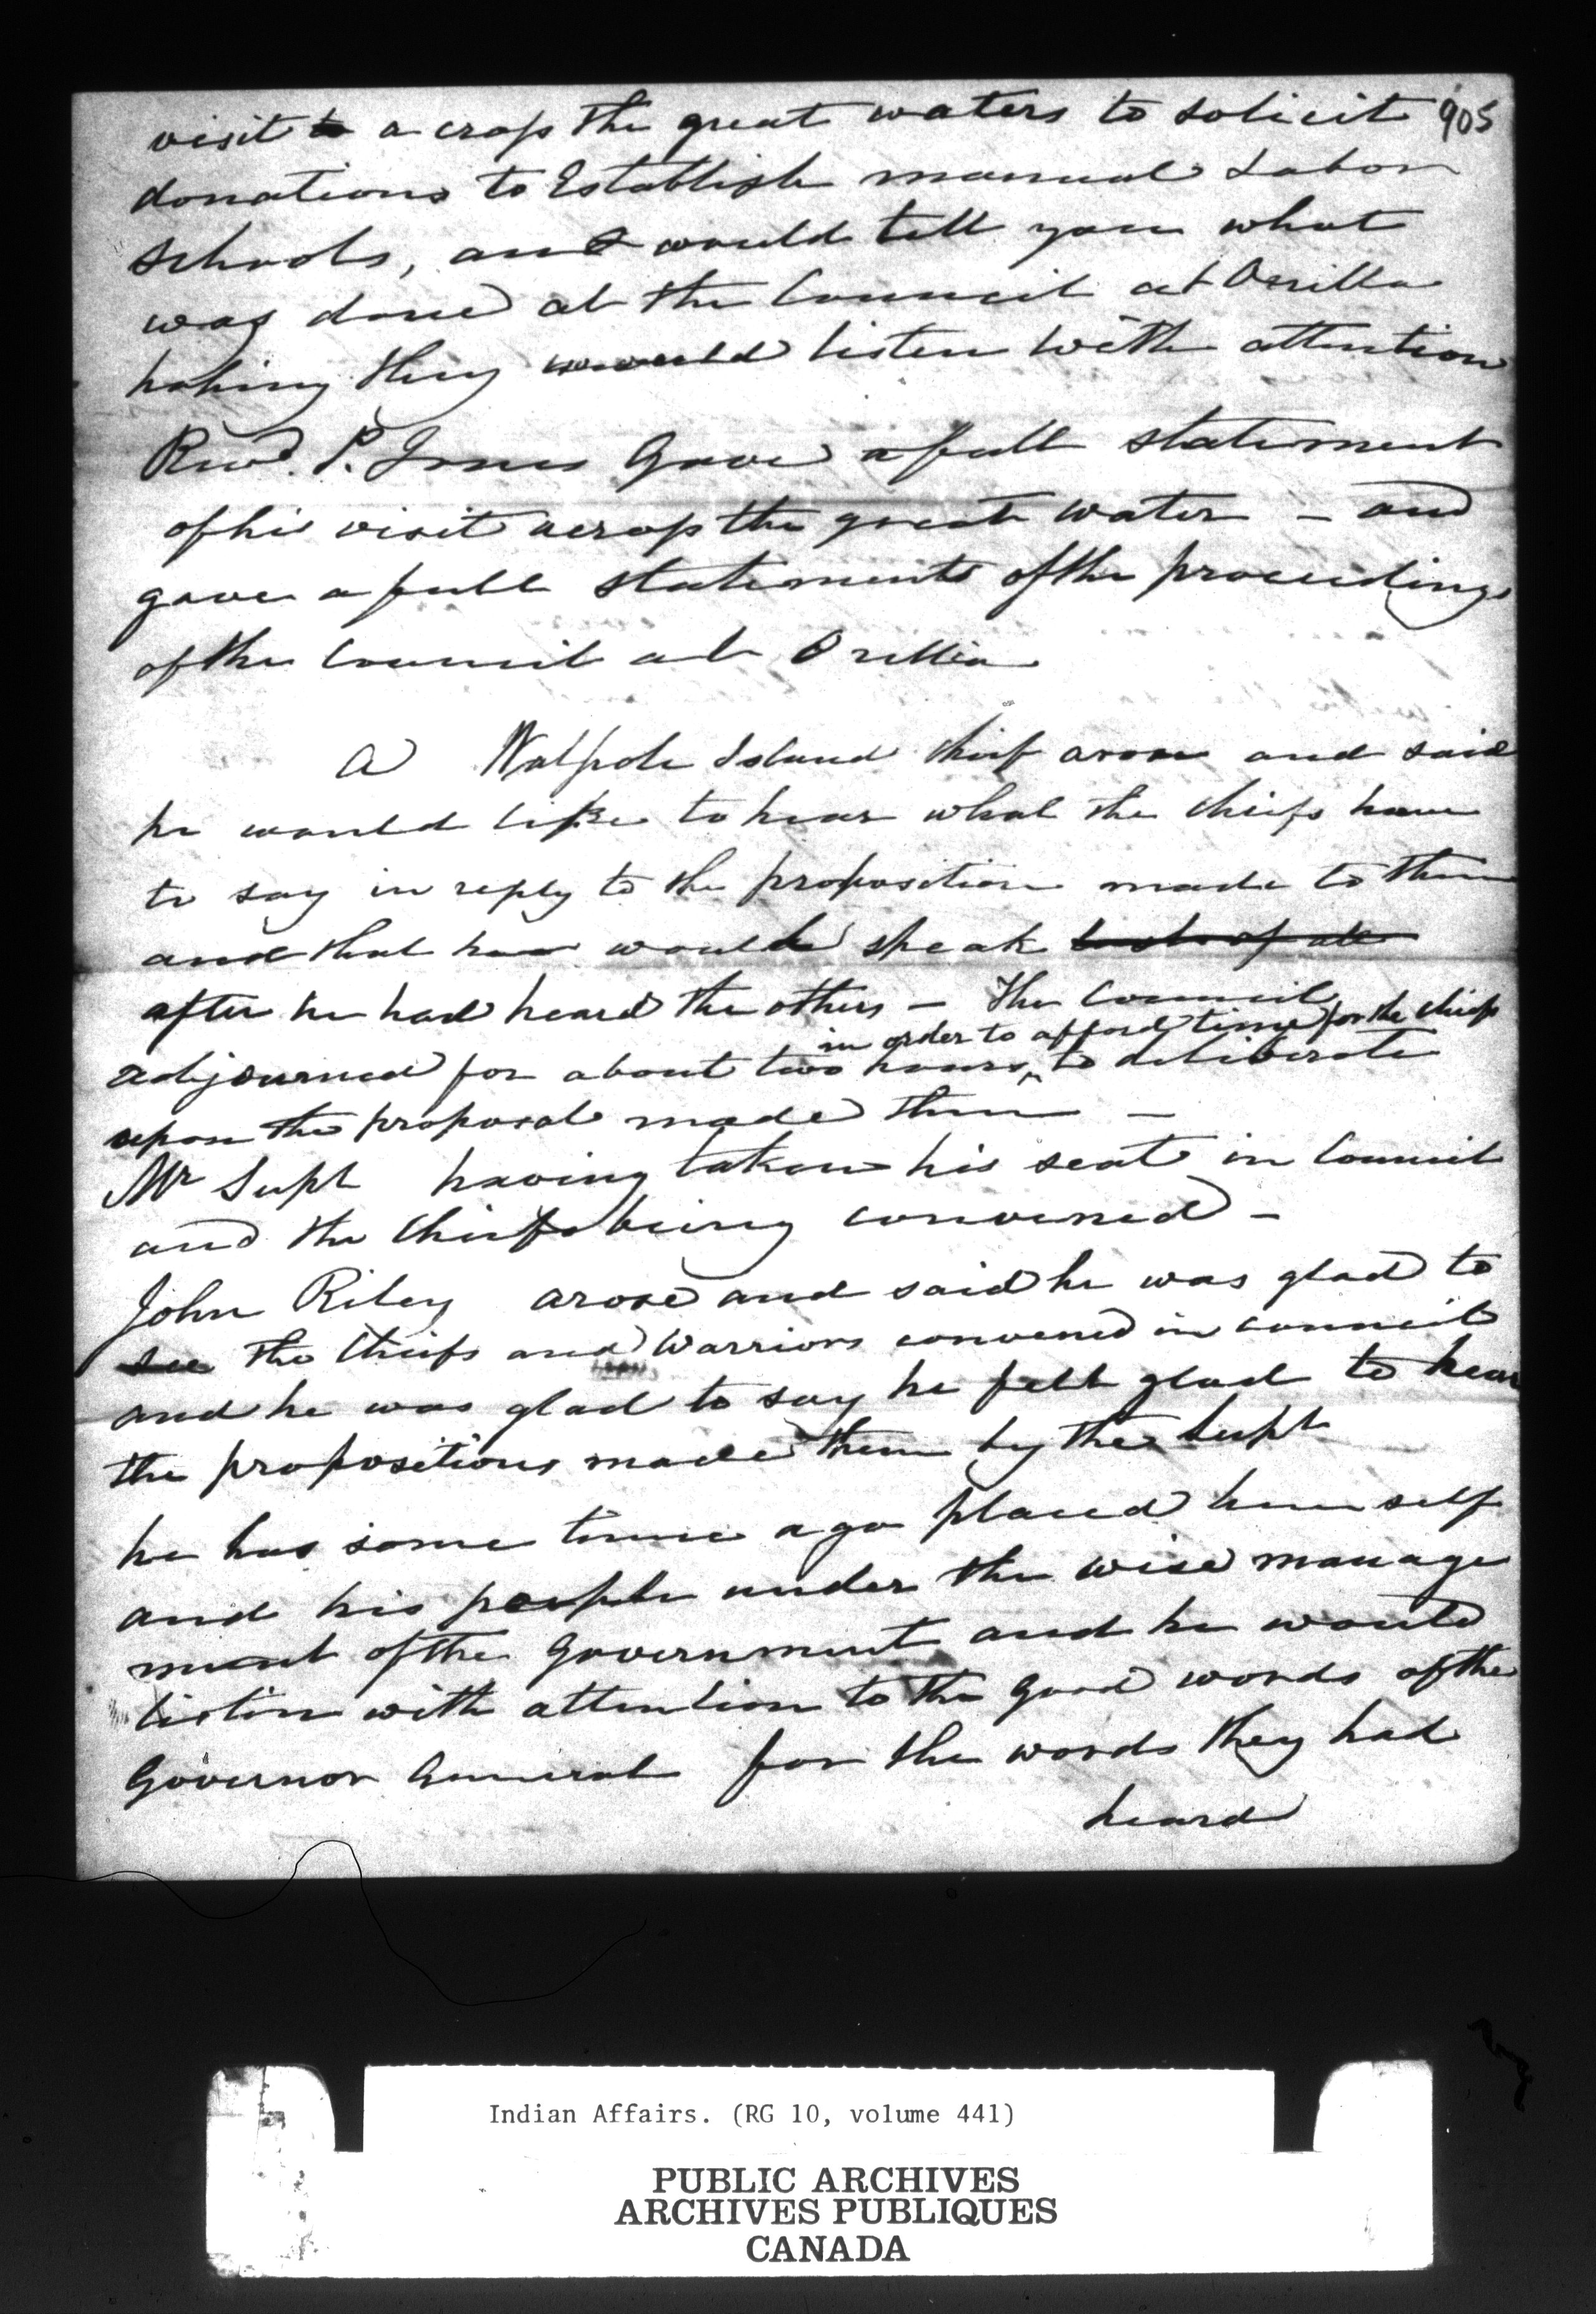 visit to a cross the great waters to solicit 905
donations to Establish manual Labor
schools, and would tell you what
was done at the Council at Orillia
hoping they would listen with attention
Revd. P. Jones Gave a full statement
of his visit across the great water – and
gave a full statements of the proceedings
of the Council at Orillia
A Walpole Island Chief arose and said
he would like to hear what the chiefs have
to say in reply to the proposition made to them
and that he would speak last of all
after he had heard the others – The Council
in order to afford time for the chiefs
adjourned for about two hours, to deliberate
upon the proposal made them –
Mr Supt having taken his seat in Council
and the Chiefs being convened –
John Riley arose and said he was glad to
see the Chiefs and Warriors convened in council
and he was glad to say he felt glad to hear
the propositions made them by the Supt
he has some time ago placed himself
and his people under the wise manage
ment of the Government and he would
listen with attention to the Good words of the
Governor General for the words they had
heard
Indian Affairs. (RG 10, volume 441)
PUBLIC ARCHIVES
ARCHIVES PUBLIQUES
CANADA